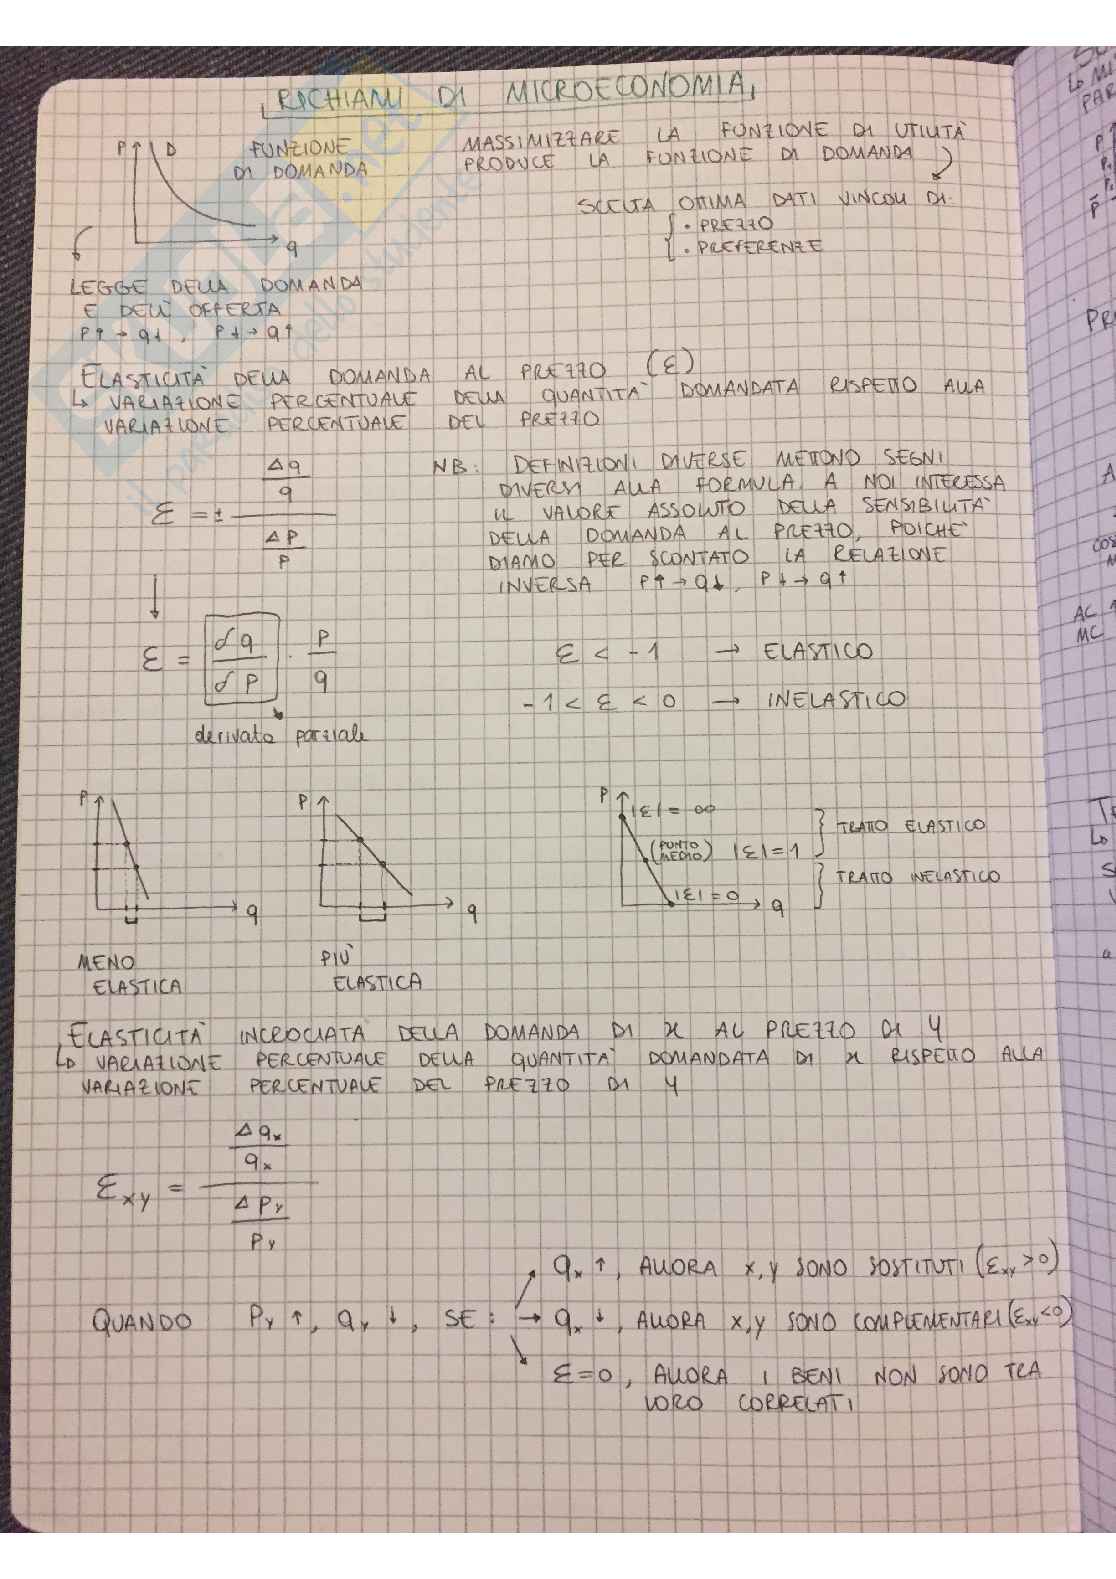 RICHIAMI DI MICROECONOMIA
P D
q
FUNZIONE
DI DOMANDA
MASSIMIZZARE LA FUNZIONE DI UTILITÀ
PRODUCE LA FUNZIONE DI DOMANDA
SCELTA OTTIMA DATI VINCOLI DI:
• PREZZO
• PREFERENZE
LEGGE DELLA DOMANDA
E DELL'OFFERTA
P↑ → q↓, P↓ → q↑
ELASTICITÀ DELLA DOMANDA AL PREZZO (ε)
↳ VARIAZIONE PERCENTUALE DELLA QUANTITÀ DOMANDATA RISPETTO ALLA
VARIAZIONE PERCENTUALE DEL PREZZO
ε = ± (Δq / q) / (ΔP / P)
NB: DEFINIZIONI DIVERSE METTONO SEGNI
DIVERSI ALLA FORMULA. A NOI INTERESSA
IL VALORE ASSOLUTO DELLA SENSIBILITÀ
DELLA DOMANDA AL PREZZO, POICHÉ
DIAMO PER SCONTATO LA RELAZIONE
INVERSA P↑ → q↓, P↓ → q↑
ε = ∂q / ∂P · P / q
derivata parziale
ε < -1 → ELASTICO
-1 < ε < 0 → INELASTICO
P
q
MENO
ELASTICA
P
q
PIÙ
ELASTICA
P
|ε| = ∞
(PUNTO MEDIO) |ε| = 1
|ε| = 0
q
TRATTO ELASTICO
TRATTO INELASTICO
ELASTICITÀ INCROCIATA DELLA DOMANDA DI x AL PREZZO DI Y
↳ VARIAZIONE PERCENTUALE DELLA QUANTITÀ DOMANDATA DI x RISPETTO ALLA
VARIAZIONE PERCENTUALE DEL PREZZO DI Y
εxy = (Δqx / qx) / (ΔPy / Py)
QUANDO Py ↑, qy ↓, SE:
→ qx ↑, ALLORA x,y SONO SOSTITUTI (εxy > 0)
→ qx ↓, ALLORA x,y SONO COMPLEMENTARI (εxy < 0)
ε = 0, ALLORA I BENI NON SONO TRA
LORO CORRELATI